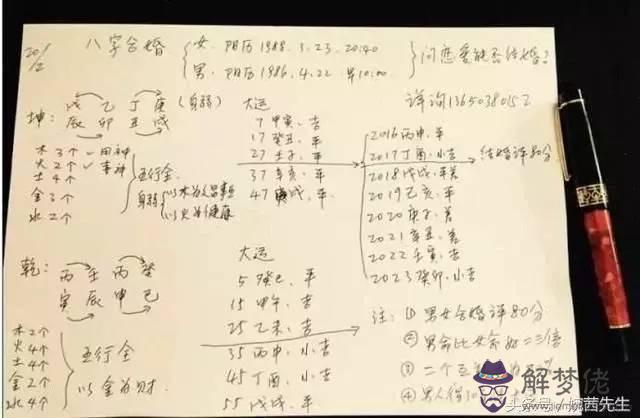 20/2
八字合婚
女．阳历1988．3．23．20:40
男．阳历1986．4．22．早10:00
问恋爱能否结婚？
坤：
戊 乙 丁 庚
辰 卯 丑 戌
(身弱)
木3个 ✓ 用神
火2个 ✓ 喜神
土4个
金3个
水2个
五行全
身弱
以木为
以火为健康
大运
7 甲寅．吉
17 癸丑．平
27 壬子．平
37 辛亥．平
47 庚戌．平
详询13650380152
2016 丙申．平
2017 丁酉．小吉
2018 戊戌．平
2019 己亥．平
2020 庚子．差
2021 辛丑．差
2022 壬寅．吉
2023 癸卯．小吉
结婚评80分
乾：
丙 壬 丙 癸
寅 辰 申 巳
木2个
火4个
土4个
金2个
水4个
五行全
以金为财
大运
5 癸巳．平
15 甲午．吉
25 乙未．吉
35 丙申．小吉
45 丁酉．小吉
55 戊戌．平
注：① 男女合婚评80分
② 男命比女命好二三倍
③ 二个
④ 男人得10
解梦佬
头条号
茜先生